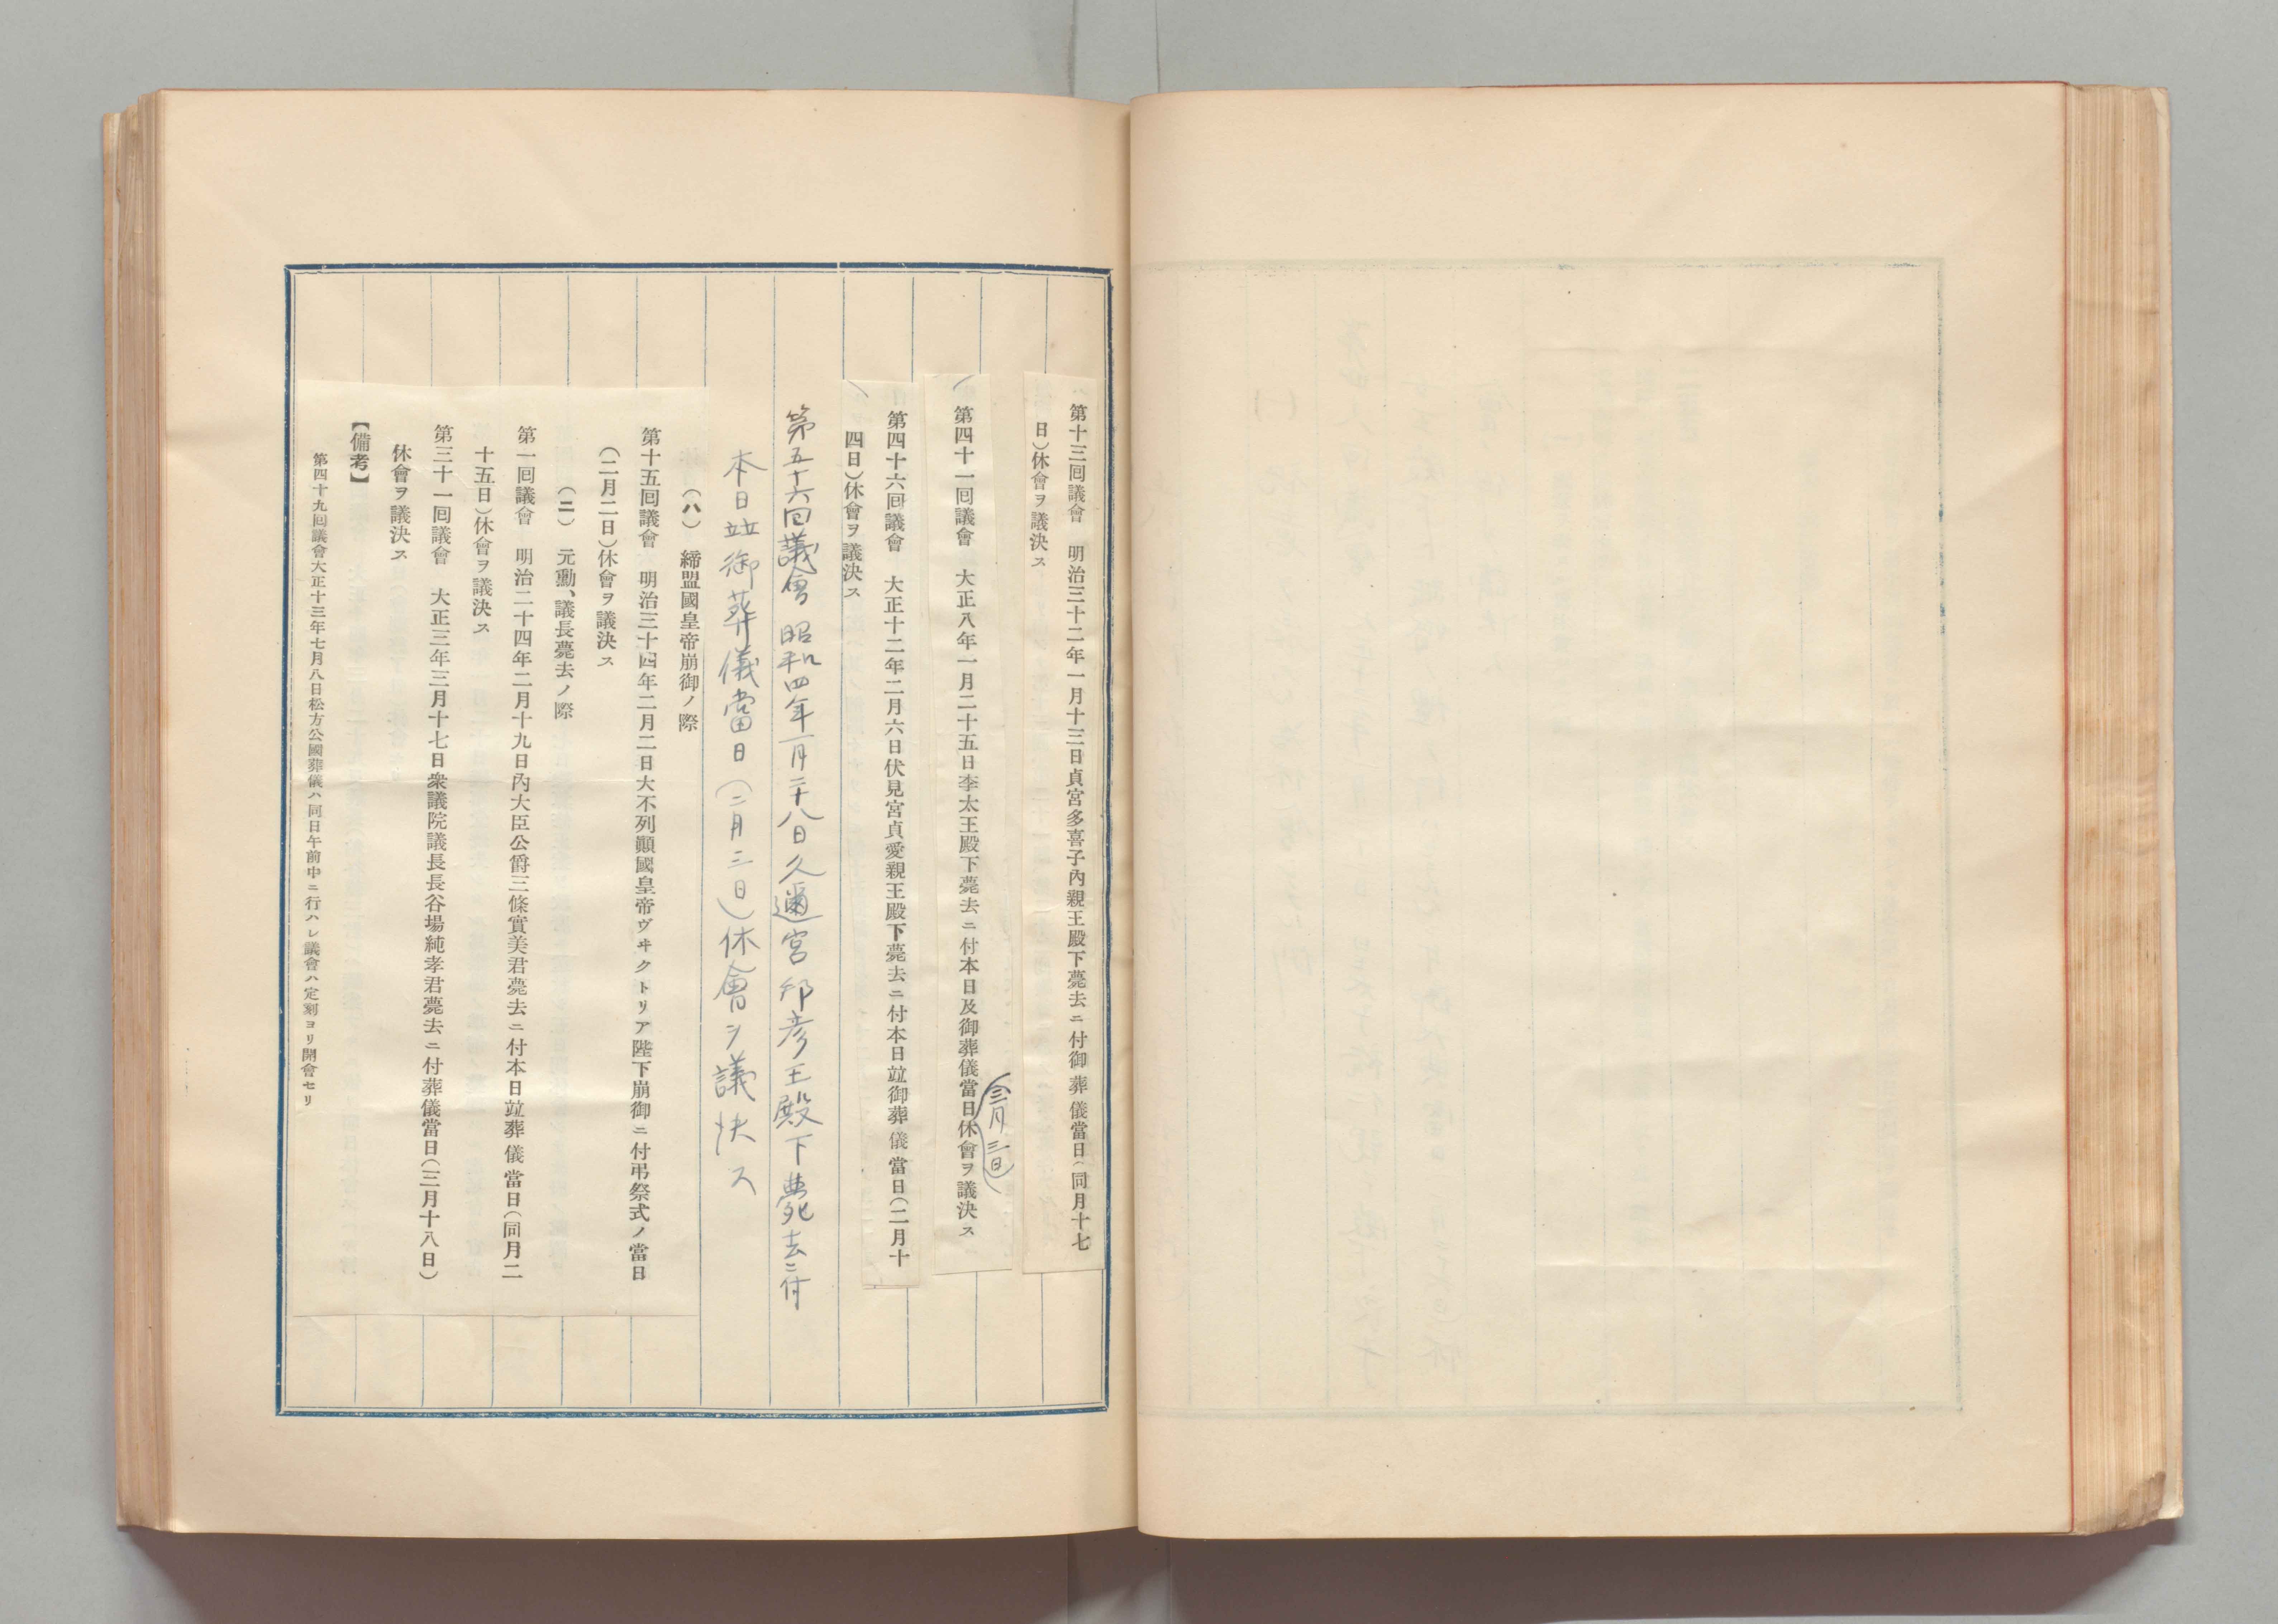 第十三囘議會　明治三十二年一月十三日貞宮多喜子內親王殿下薨去ニ付御葬儀當日（同月十七
日）休會ヲ議決ス
第四十一囘議會　大正八年一月二十五日李太王殿下薨去ニ付本日及御葬儀當日休會ヲ議決ス
（三月三日）
第四十六囘議會　大正十二年二月六日伏見宮貞愛親王殿下薨去ニ付本日竝御葬儀當日（二月十
四日）休會ヲ議決ス
第五十六回議會　昭和四年一月二十八日久邇宮邦彦王殿下薨去ニ付
本日竝御葬儀當日（二月三日）休會ヲ議決ス
（ハ）　締盟國皇帝崩御ノ際
第十五囘議會　明治三十四年二月二日大不列顚國皇帝ヴヰクトリア陛下崩御ニ付弔祭式ノ當日
（二月二日）休會ヲ議決ス
（ニ）　元勳、議長薨去ノ際
第一囘議會　明治二十四年二月十九日內大臣公爵三條實美君薨去ニ付本日竝葬儀當日（同月二
十五日）休會ヲ議決ス
第三十一囘議會　大正三年三月十七日衆議院議長長谷場純孝君薨去ニ付葬儀當日（三月十八日）
休會ヲ議決ス
【備考】
第四十九囘議會大正十三年七月八日松方公國葬儀ハ同日午前中ニ行ハレ議會ハ定刻ヨリ開會セリ